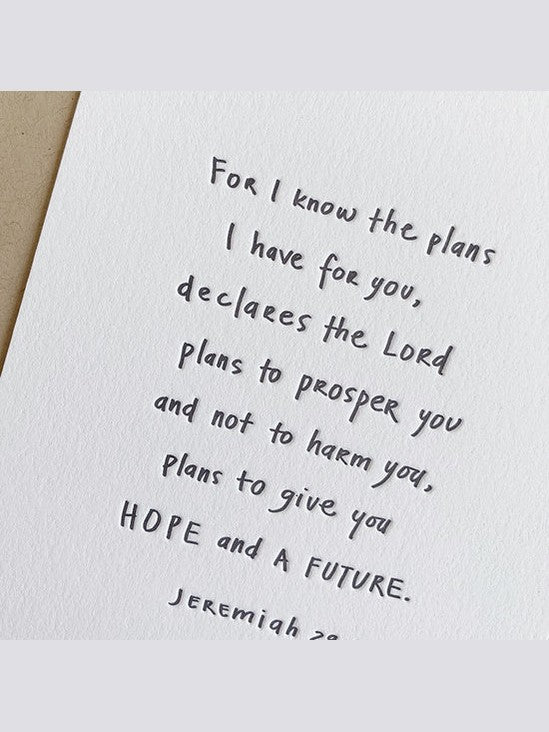 FOR I know the plans
I have for you,
declares the Lord
plans to prosper you
and not to harm you,
plans to give you
HOPE and A FUTURE.
Jeremiah